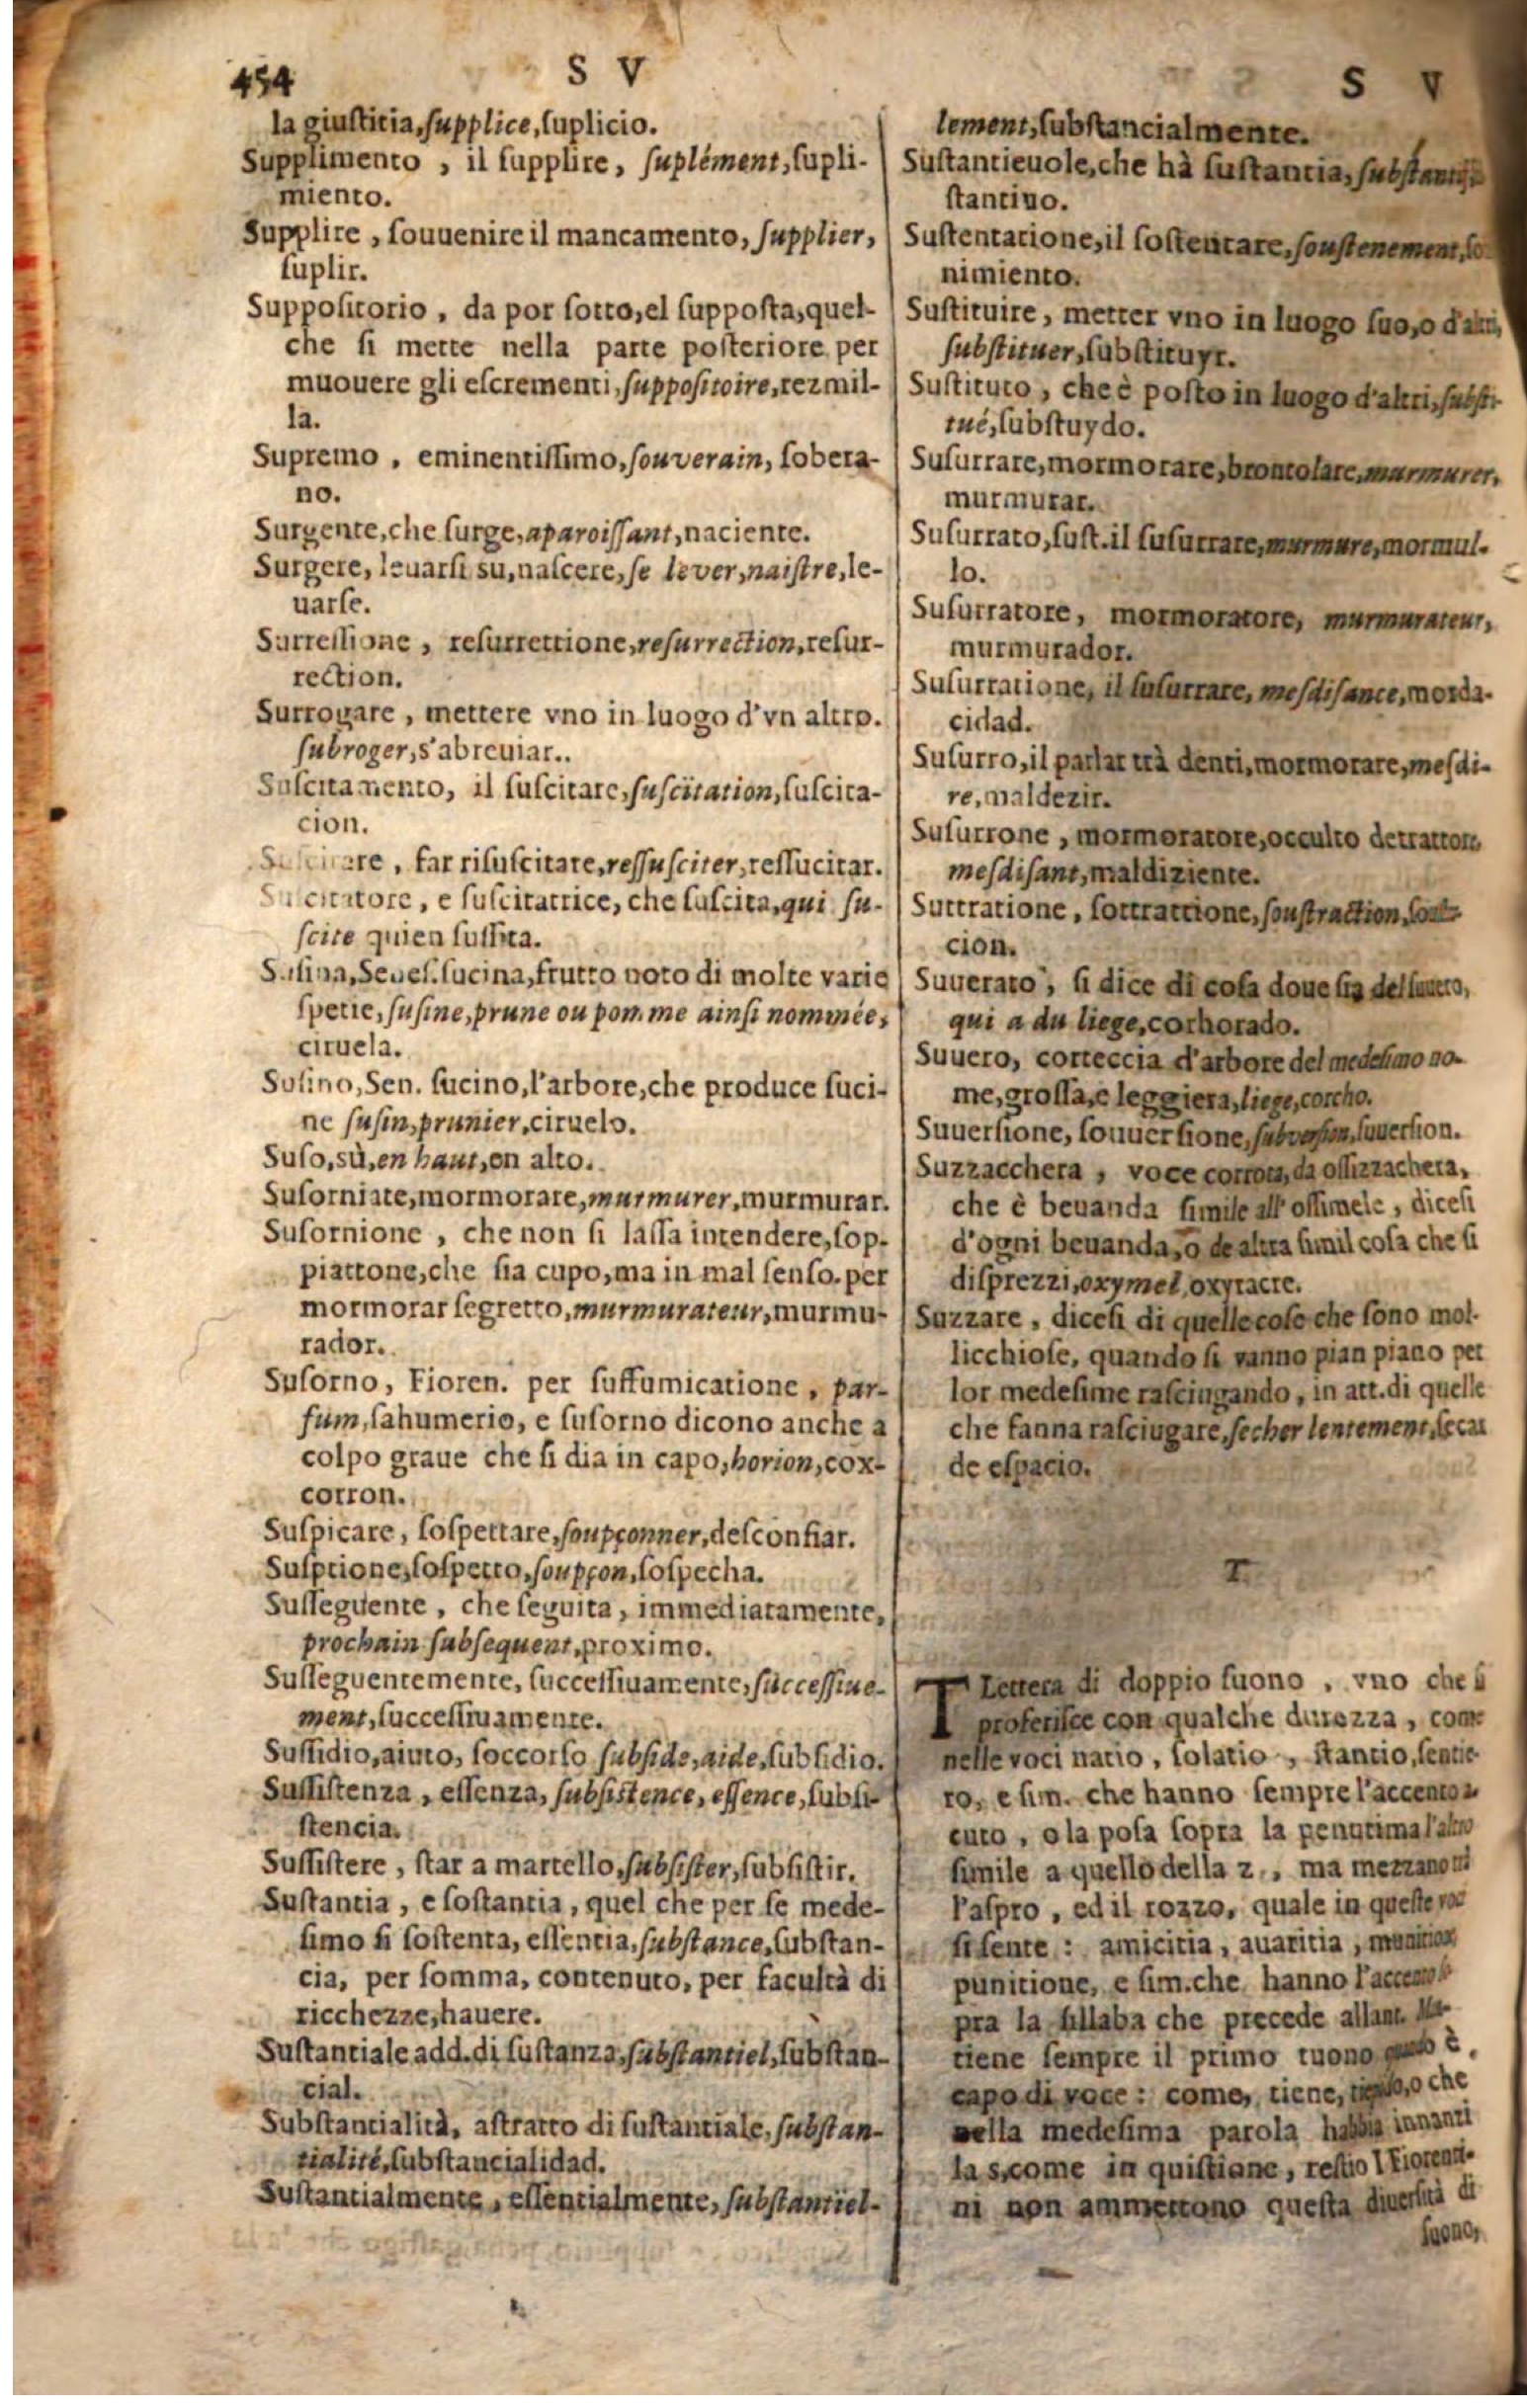 454
S V
S V
la giuſtitia, ſupplice, ſuplicio.
Supplimento , il ſupplire, ſuplément, ſupli-
miento.
Supplire , ſouuenire il mancamento, ſupplier,
ſuplir.
Suppoſitorio , da por ſotto, el ſuppoſta, quel-
che ſi mette nella parte poſteriore per
muouere gli eſcrementi, ſuppoſitoire, tezmil-
la.
Supremo , eminentiſſimo, ſouverain, ſobera-
no.
Surgente, che ſurge, aparoiſſant, naciente.
Surgere, leuarſi su, naſcere, ſe lever, naiſtre, le-
uarſe.
Surreſſione , reſurrettione, reſurrection, reſur-
rection.
Surrogare , mettere vno in luogo d'vn altro.
ſubroger, s'abreuiar..
Suſcitamento, il ſuſcitare, ſuſcitation, ſuſcita-
cion.
Suſcitare , far riſuſcitare, reſſuſciter, reſſucitar.
Suſcitatore , e ſuſcitatrice, che ſuſcita, qui ſu-
ſcite quien ſuſſita.
Suſina, Seneſ. ſucina, frutto noto di molte varie
ſpetie, ſuſine, prune ou pomme ainſi nommée,
ciruela.
Suſino, Sen. ſucino, l'arbore, che produce ſuci-
ne ſuſin, prunier, ciruelo.
Suſo, sù, en haut, on alto.
Suſorniate, mormorare, murmurer, murmurar.
Suſornione , che non ſi laſſa intendere, ſop-
piattone, che ſia cupo, ma in mal ſenſo. per
mormorar ſegretto, murmurateur, murmu-
rador.
Suſorno, Fioren. per ſuffumicatione , par-
fum, ſahumerio, e ſuſorno dicono anche a
colpo graue che ſi dia in capo, horion, cox-
corron.
Suſpicare , ſoſpettare, ſoupçonner, deſconfiar.
Suſptione, ſoſpetto, ſoupçon, ſoſpecha.
Suſſeguente , che ſeguita , immediatamente,
prochain ſubſequent, proximo.
Suſſeguentemente, ſucceſſiuamente, ſucceſſiue-
ment, ſucceſſiuamente.
Suſſidio, aiuto, ſoccorſo ſubſide, aide, ſubſidio.
Suſſiſtenza , eſſenza, ſubſistence, eſſence, ſubſi-
ſtencia.
Suſſiſtere , ſtar a martello, ſubſiſter, ſubſiſtir.
Suſtantia , e ſoſtantia , quel che per ſe mede-
ſimo ſi ſoſtenta, eſſentia, ſubſtance, ſubſtan-
cia, per ſomma, contenuto, per facultà di
ricchezze, hauere.
Suſtantiale add. di ſuſtanza, ſubſtantiel, ſubſtan-
cial.
Subſtantialità, aſtratto di ſuſtantiale, ſubſtan-
tialité, ſubſtancialidad.
Suſtantialmente , eſſentialmente, ſubſtantiel-
lement, ſubſtancialmente.
Suſtantieuole, che hà ſuſtantia,
ſtantiuo.
Suſtentatione, il ſoſtentare, ſouſtenement,
nimiento.
Suſtituire , metter vno in luogo ſuo, o d'altri,
ſubſtituer, ſubſtituyr.
Suſtituto , che è poſto in luogo d'altri, ſubſti-
tué, ſubſtuydo.
Suſurrare, mormorare, brontolare, murmurer,
murmurar.
Suſurrato, ſuſt. il ſuſurrare, murmure, mormul-
lo.
Suſurratore, mormoratore, murmurateur,
murmurador.
Suſurratione, il ſuſurrare, meſdiſance, morda-
cidad.
Suſurro, il parlar trà denti, mormorare, meſdi-
re, maldezir.
Suſurrone , mormoratore, occulto detrattore
meſdiſant, maldiziente.
Suttratione , ſottrattione, ſouſtraction,
cion.
Suuerato , ſi dice di coſa doue ſia del ſuuero,
qui a du liege, corhorado.
Suuero, corteccia d'arbore del medeſimo no-
me, groſſa, e leggiera, liege, corcho.
Suuerſione, ſouuerſione, ſubverſion, ſuuerſion.
Suzzacchera , voce corrota, da oſſizzachera,
che è beuanda ſimile all' oſſimele , diceſi
d'ogni beuanda, o de altra ſimil coſa che ſi
diſprezzi, oxymel, oxytacre.
Suzzare , diceſi di quelle coſe che ſono mol-
licchioſe, quando ſi vanno pian piano per
lor medeſime raſciugando , in att. di quelle
che fanna raſciugare, ſecher lentement, ſecar
de eſpacio.
T
T Lettera di doppio ſuono , vno che ſi
proferiſce con qualche durezza , come
nelle voci natio , ſolatio , ſtantio, ſentie-
ro, e ſim. che hanno ſempre l'accento a-
cuto , o la poſa ſopra la penutima l'altro
ſimile a quello della z , ma mezzano trà
l'aſpro , ed il rozzo, quale in queſte voc
ſi ſente : amicitia , auaritia , munitione
punitione, e ſim. che hanno l'accento ſo-
pra la ſillaba che precede allant. Ma-
tiene ſempre il primo tuono quando è
capo di voce : come, tiene, tiepido, o che
nella medeſima parola habbia innanzi
la s, come in quiſtione , reſtio I Fiorenti-
ni non ammettono queſta diuerſità di
ſuono,